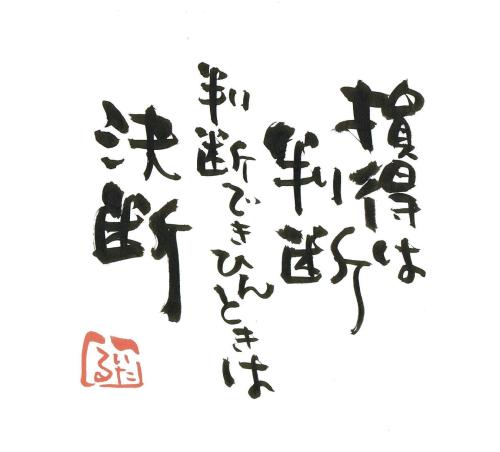 損得は
判断
判断できひんときは
決断